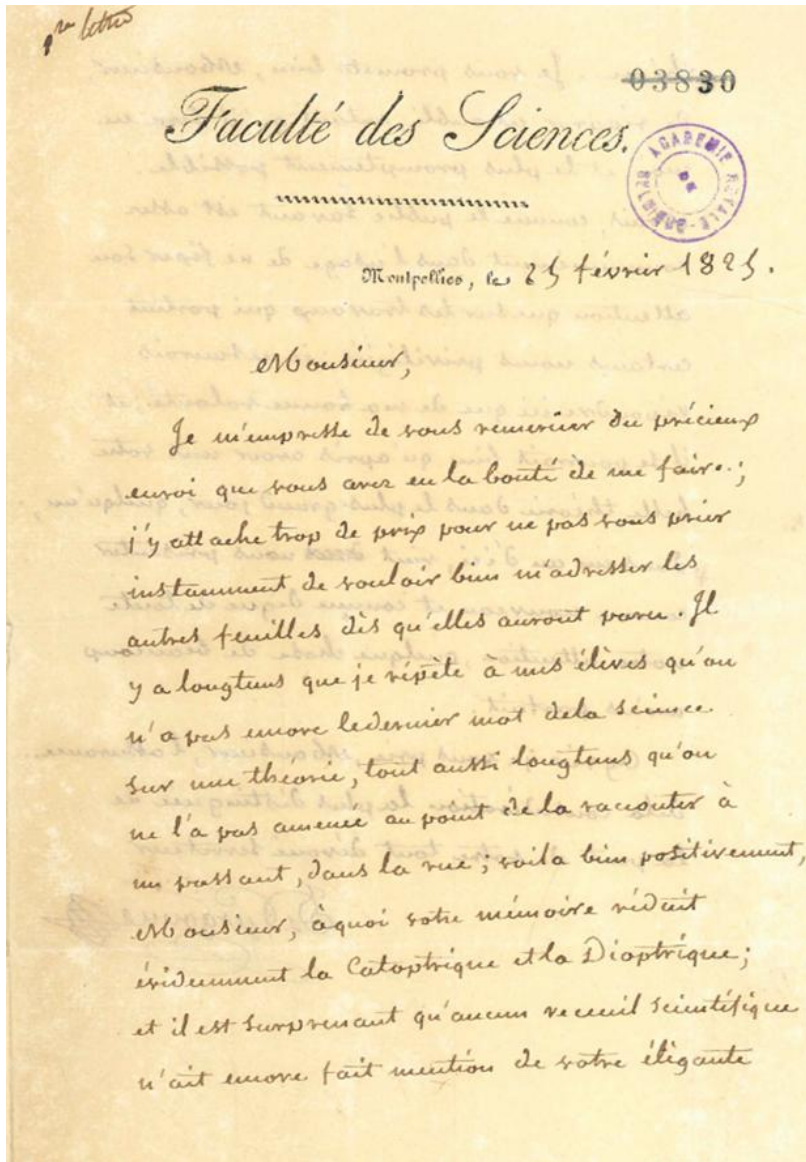 1re lettre
03830
Faculté des Sciences.
ACADEMIE ROYALE DE BELGIQUE
Montpellier, le 25 février 1825.
Monsieur,
Je m'empresse de vous remercier du précieux
envoi que vous avez eu la bonté de me faire ;
j'y attache trop de prix pour ne pas vous prier
instamment de vouloir bien m'adresser les
autres feuilles dès qu'elles auront paru. Il
y a longtems que je répète à mes élèves qu'on
n'a pas encore le dernier mot de la science
sur une théorie, tout aussi longtems qu'on
ne l'a pas amenée au point de la raconter à
un passant, dans la rue ; voila bien positivement,
Monsieur, à quoi votre mémoire réduit
évidemment la Catoptrique et la Dioptrique ;
et il est surprenant qu'aucun receuil scientifique
n'ait encore fait mention de votre élégante